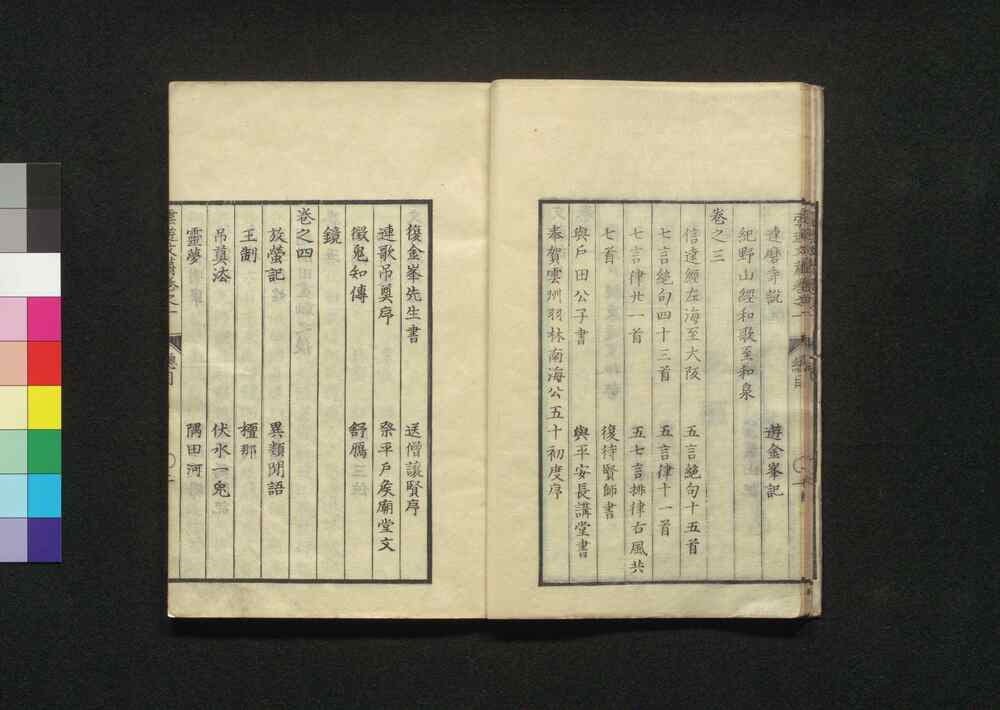 達磨寺説　遊金峯記
紀野山經和歌至和泉
卷之三
信達經左海至大阪　五言絶句十五首
七言絶句四十三首　五言律十一首
七言律廿一首　五七言排律古風共
七首　復持賢師書
與戸田公子書　與平安長講堂書
奉賀雲州羽林南海公五十初度序
復金峯先生書　送僧讓賢序
連歌吊奠序　祭平戸矦廟堂文
徴鬼知傳　舒鴈三位
鏡
卷之四
放螢記　異類問語
王制　檀那
吊奠法　伏水一鬼
靈夢　隅田河
雲遊文蔵卷之一　總目